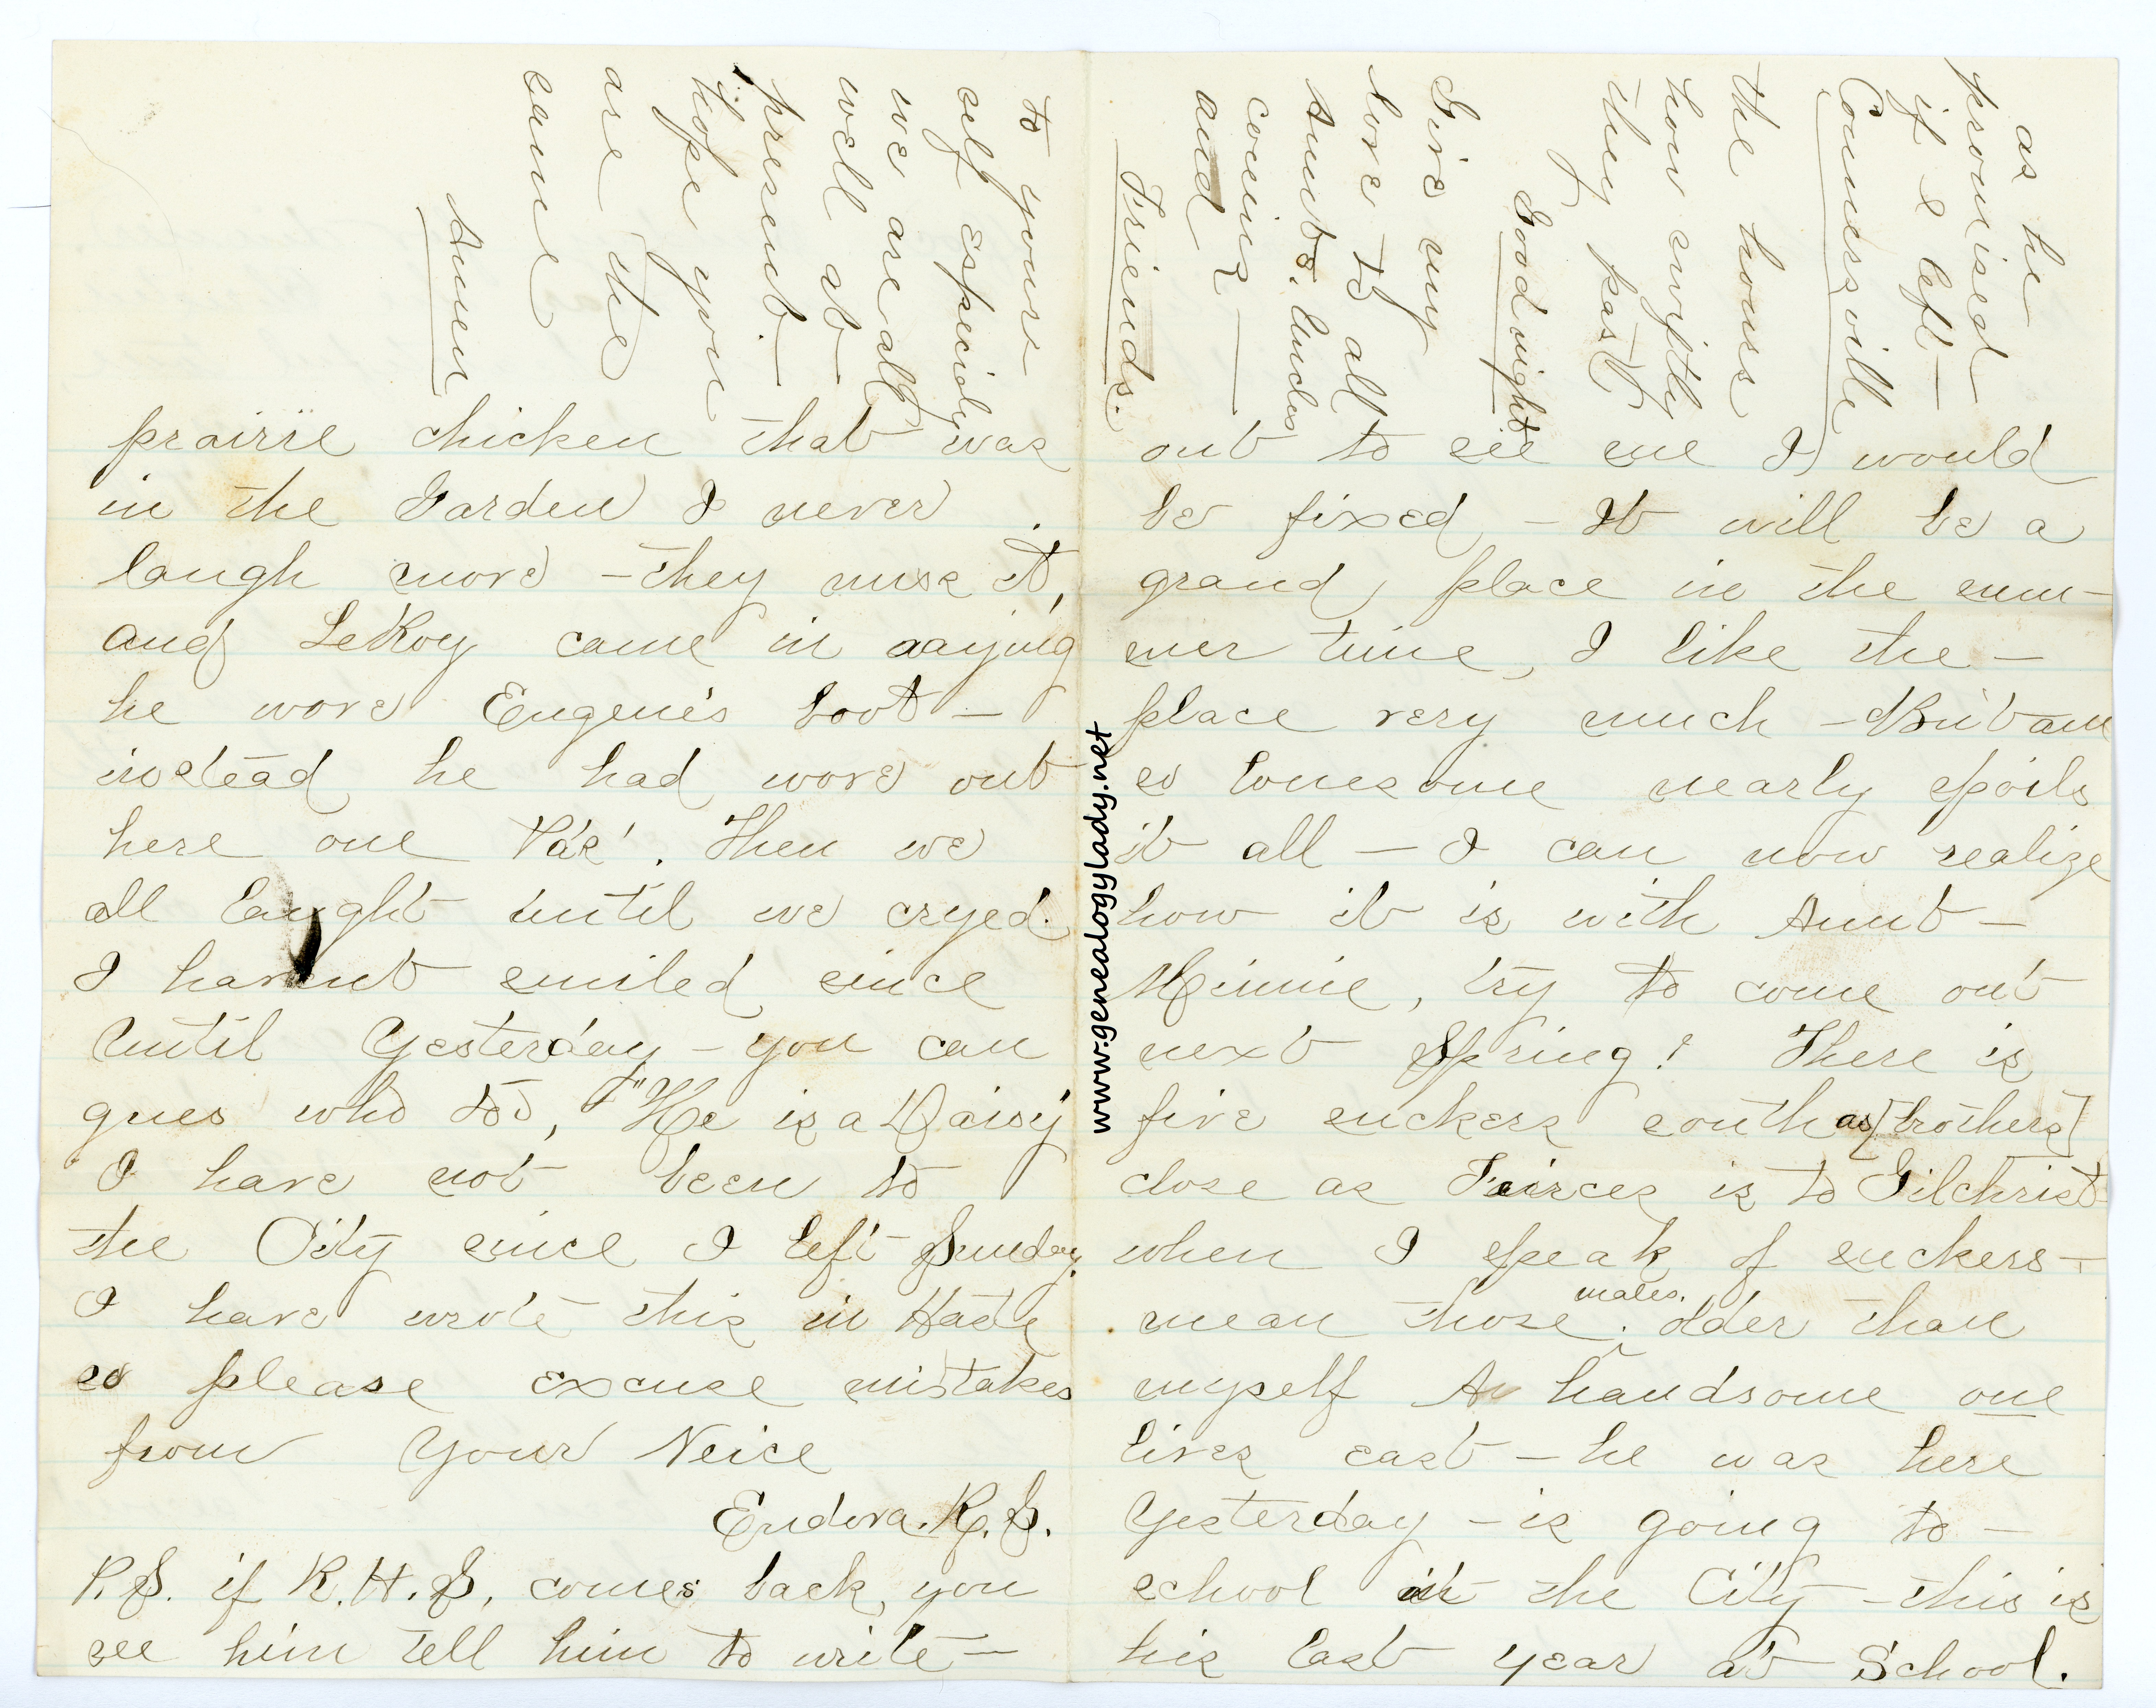 prairie chicken that was
in the Garden I never
laugh more - they miss it,
and LeKoy came in saying
he wore Eugene's boot -
instead he had wore out
here one
all laught until we cryed.
I havent smiled since
until Yesterday - you can
gues who too, "He is a Daisy
I have not been to
the City since I left Sunday.
I have wrote this in Haste
so please excuse mistakes
from Your Neice
Eudora. K. S.
P.S. if K. H. S. comes back, you
see him tell him to write -
out to see me I would
be fixed - It will be a
grand place in the sum-
mer time, I like the -
place very much - But am
so lonesome nearly spoils
it all - I can now realize
how it is with Aunt -
Minnie, try to come out
next Spring! There is
five suckers south as [brothers]
close as Peirces is to Gilchrist
when I speak of suckers -
mean those males. older than
myself A handsome one
lives east - he was here
Yesterday - is going to -
school in the City - this is
his last year at School.
as he
promised
if I left -
Connersville
the hours
how swiftly
they past
Good night
Give my
love to all
Aunts. Uncles
coming
and
Friends.
to your -
self especialy
we are all
well at -
present -
hope you
are the
same
Amen
www.genealogylady.net